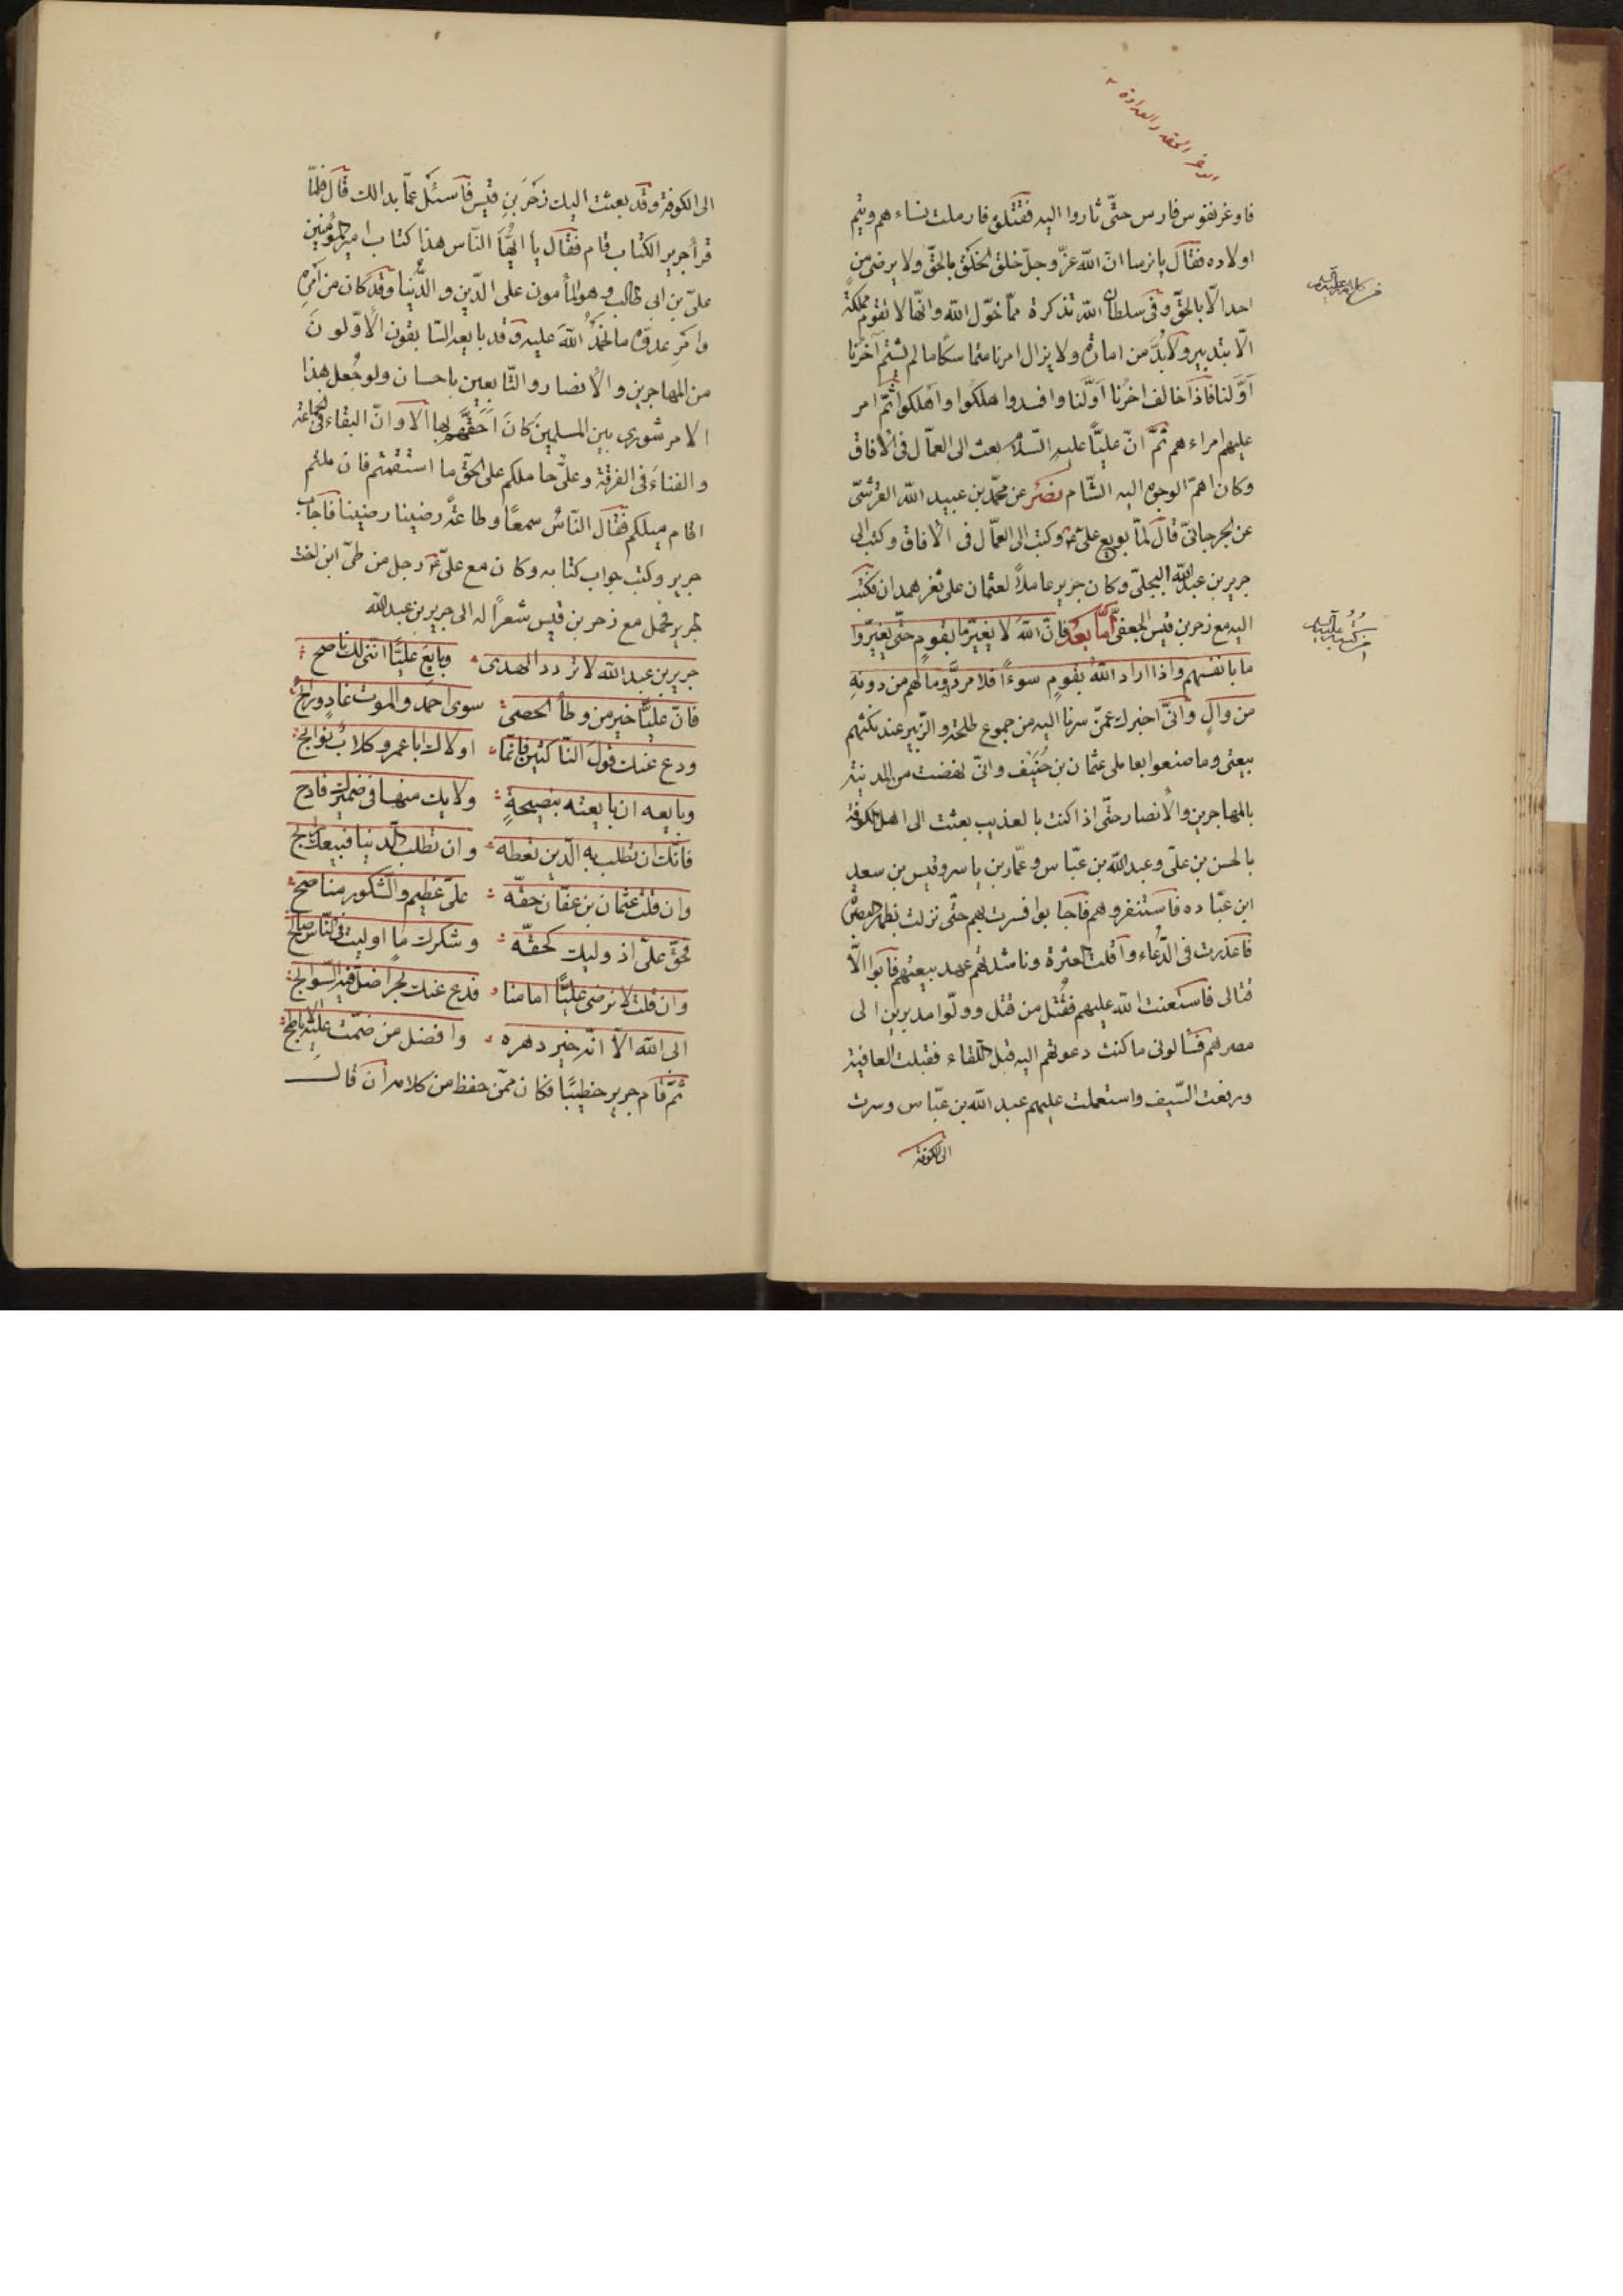 الوغر الحقد والعداوة
فاوغر نفوس فارس حتّى ثاروا اليه فقتلوه فارملت نساءهم ويتم
اولاده فقال يا نرسا انّ الله عزّ وجلّ خلق الخلق بالحقّ ولا يرضى من
احد الّا بالحقّ وفى سلطان الله تذكرة ممّا خوّل الله وانّها لا تقوم مملكة
الّا بتدبير ولا بُدَّ من امارة ولا يزال امرنا متماسكًا ما لم يشتم آخرنا
اوّلنا فاذا خالف اخرُنا اوّلَنا وافسدوا هلكوا واهلكوا ثمّ امر
عليهم امراءهم ثمّ انّ عليًّا عليه السّلام بعث الى العمّال فى الآفاق
وكان اهمّ الوجوه اليه الشّام نصر عن محمّد بن عبيد الله القرشىّ
عن الجرجانىّ قال لمّا بويع علىّ وكتب الى العمّال فى الآفاق وكتب الى
جرير بن عبد الله البجلىّ وكان جرير عاملاً لعثمان على ثغر همدان فكتب
اليه مع زحر بن قيس الجعفىّ امّا بعد فانّ الله لا يغيّر ما بقوم حتّى يغيّروا
ما بانفسهم واذا اراد الله بقومٍ سوءًا فلا مردّ له وما لهم من دونه
من والٍ وانّى اخبرك عمّن سرنا اليه من جموع طلحة والزّبير عند نكثهم
بيعتى وما صنعوا بعاملى عثمان بن حُنَيف وانّى نهضت من المدينة
بالمهاجرين والأنصار حتّى اذا كنت بالعذيب بعثت الى اهل الكوفة
بالحسن بن علىّ وعبد الله بن عبّاس وعمّار بن ياسر وقيس بن سعد
ابن عبّاده فاستنفروهم فاجابوا فسرت بهم حتّى نزلت بظهر البصرة
فاعذرت فى الدّعاء واقلت العثرة وناشدتهم عهد بيعتهم فابوا الّا
قتالى فاستعنت الله عليهم فقُتل من قتل وولّوا مدبرين الى
مصرهم فسألونى ما كنت دعوتهم اليه قبل اللّقاء فقبلت العافية
ورفعت السّيف واستعملت عليهم عبد الله بن عبّاس وسرت
الى الكوفة
الى الكوفة وقد بعثت اليك زحر بن قيس فاسئل عمّا بدالك قال فلمّا
قرأ جرير الكتاب قام فقال يا ايّها النّاس هذا كتاب امير المؤمنين
علىّ بن ابى طالب وهو المأمون على الدّين والدّنيا وقد كان من امره
وامر عدوّه ما نحمد الله عليه وقد بايعه السّابقون الأوّلون
من المهاجرين والأنصار والتّابعين باحسان ولو جُعل هذا
الامر شورى بين المسلمين كان احقّهم بها الا وانّ البقاء فى الجماعة
والفناء فى الفرقة وعلىّ حاملكم على الحقّ ما استقمتم فان ملتم
اقام ميلكم فقال النّاس سمعًا وطاعةً رضينا رضينا فاجاب
جرير وكتب جواب كتابه وكان مع علىّ رجل من طىّ ابن اخت
لجرير فحمل مع زحر بن قيس شعرًا له الى جرير بن عبد الله
جرير بن عبد الله لا تردد الهدى وبايع عليًّا انّنى لك ناصح
فانّ عليًّا خير من وطأ الحصى سوى احمد والموت غادٍ ورائح
ودع عنك قول النّاكثين فانّما اولاك ابا عمرو كلابٌ نوابح
وبايعه ان بايعته بنصيحةٍ ولا يك منها فى ضميرك قادح
فانّك ان تطلب به الدّين تعطه وان تطلب الدّنيا فبيعك رابح
وان قلت عثمان بن عفّان حقّه علىّ عظيم والشّكور مناصح
فحقّ علىّ اذ وليك كحقّه وشكرك ما اوليت فى النّاس صالح
وان قلت لا نرضى عليًّا امامنا فدع عنك بحرًا ضلّ فيه السّوابح
ابى الله الّا انّه خير دهره وافضل من ضمّت عليه الاباطح
ثمّ قام جرير خطيبًا فكان ممّن حفظ من كلامه ان قال